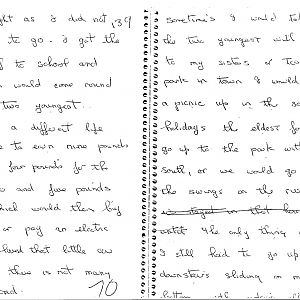 ght as i did not 139
to go. i got the
to school and
would come round
two youngest..
a different life
to own nine pounds
four pounds for th
and five pounds
hich would then buy
or pay an electric
hand that little ew
there is not many
70
sometimes I would ta
the two youngest with
to my sisters or
park in town I would
a picnic up in the sc
holidays the eldest fo
go up to the park wit
south, or we would go
the swings on the
stayed in that ho
The only thing
I still had to go up
downstairs sliding on m
bottom